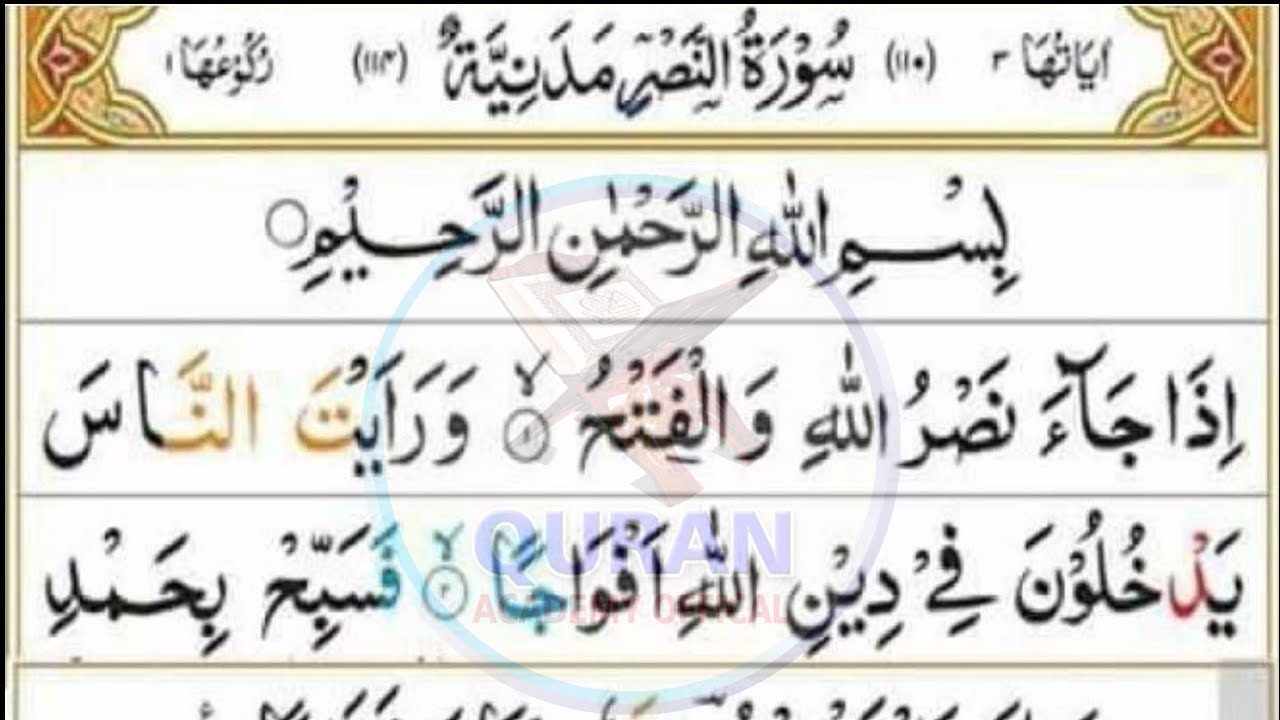 اٰيَاتُهَا ٣ (١١٠) سُوْرَةُ النَّصْرِ مَدَنِيَّةٌ (١١٤) رُكُوْعُهَا ١
بِسْمِ اللّٰهِ الرَّحْمٰنِ الرَّحِيْمِ ○
اِذَا جَآءَ نَصْرُ اللّٰهِ وَالْفَتْحُ ۙ ١ وَرَاَيْتَ النَّاسَ
يَدْخُلُوْنَ فِيْ دِيْنِ اللّٰهِ اَفْوَاجًا ۙ ٢ فَسَبِّحْ بِحَمْدِ
QURAN
ACADEMY OFFICAL